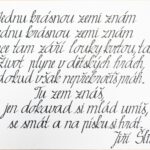 jednu krásnou zemi znám
jednu krásnou zemi znám
se tam září, louky kvetou, ta
život plyne v dětských hrách,
dokud však nepřekročíš práh.
Tu zem znáš,
jen dokavad si mlád umíš,
se smát a na písku si hrát.
Jiří